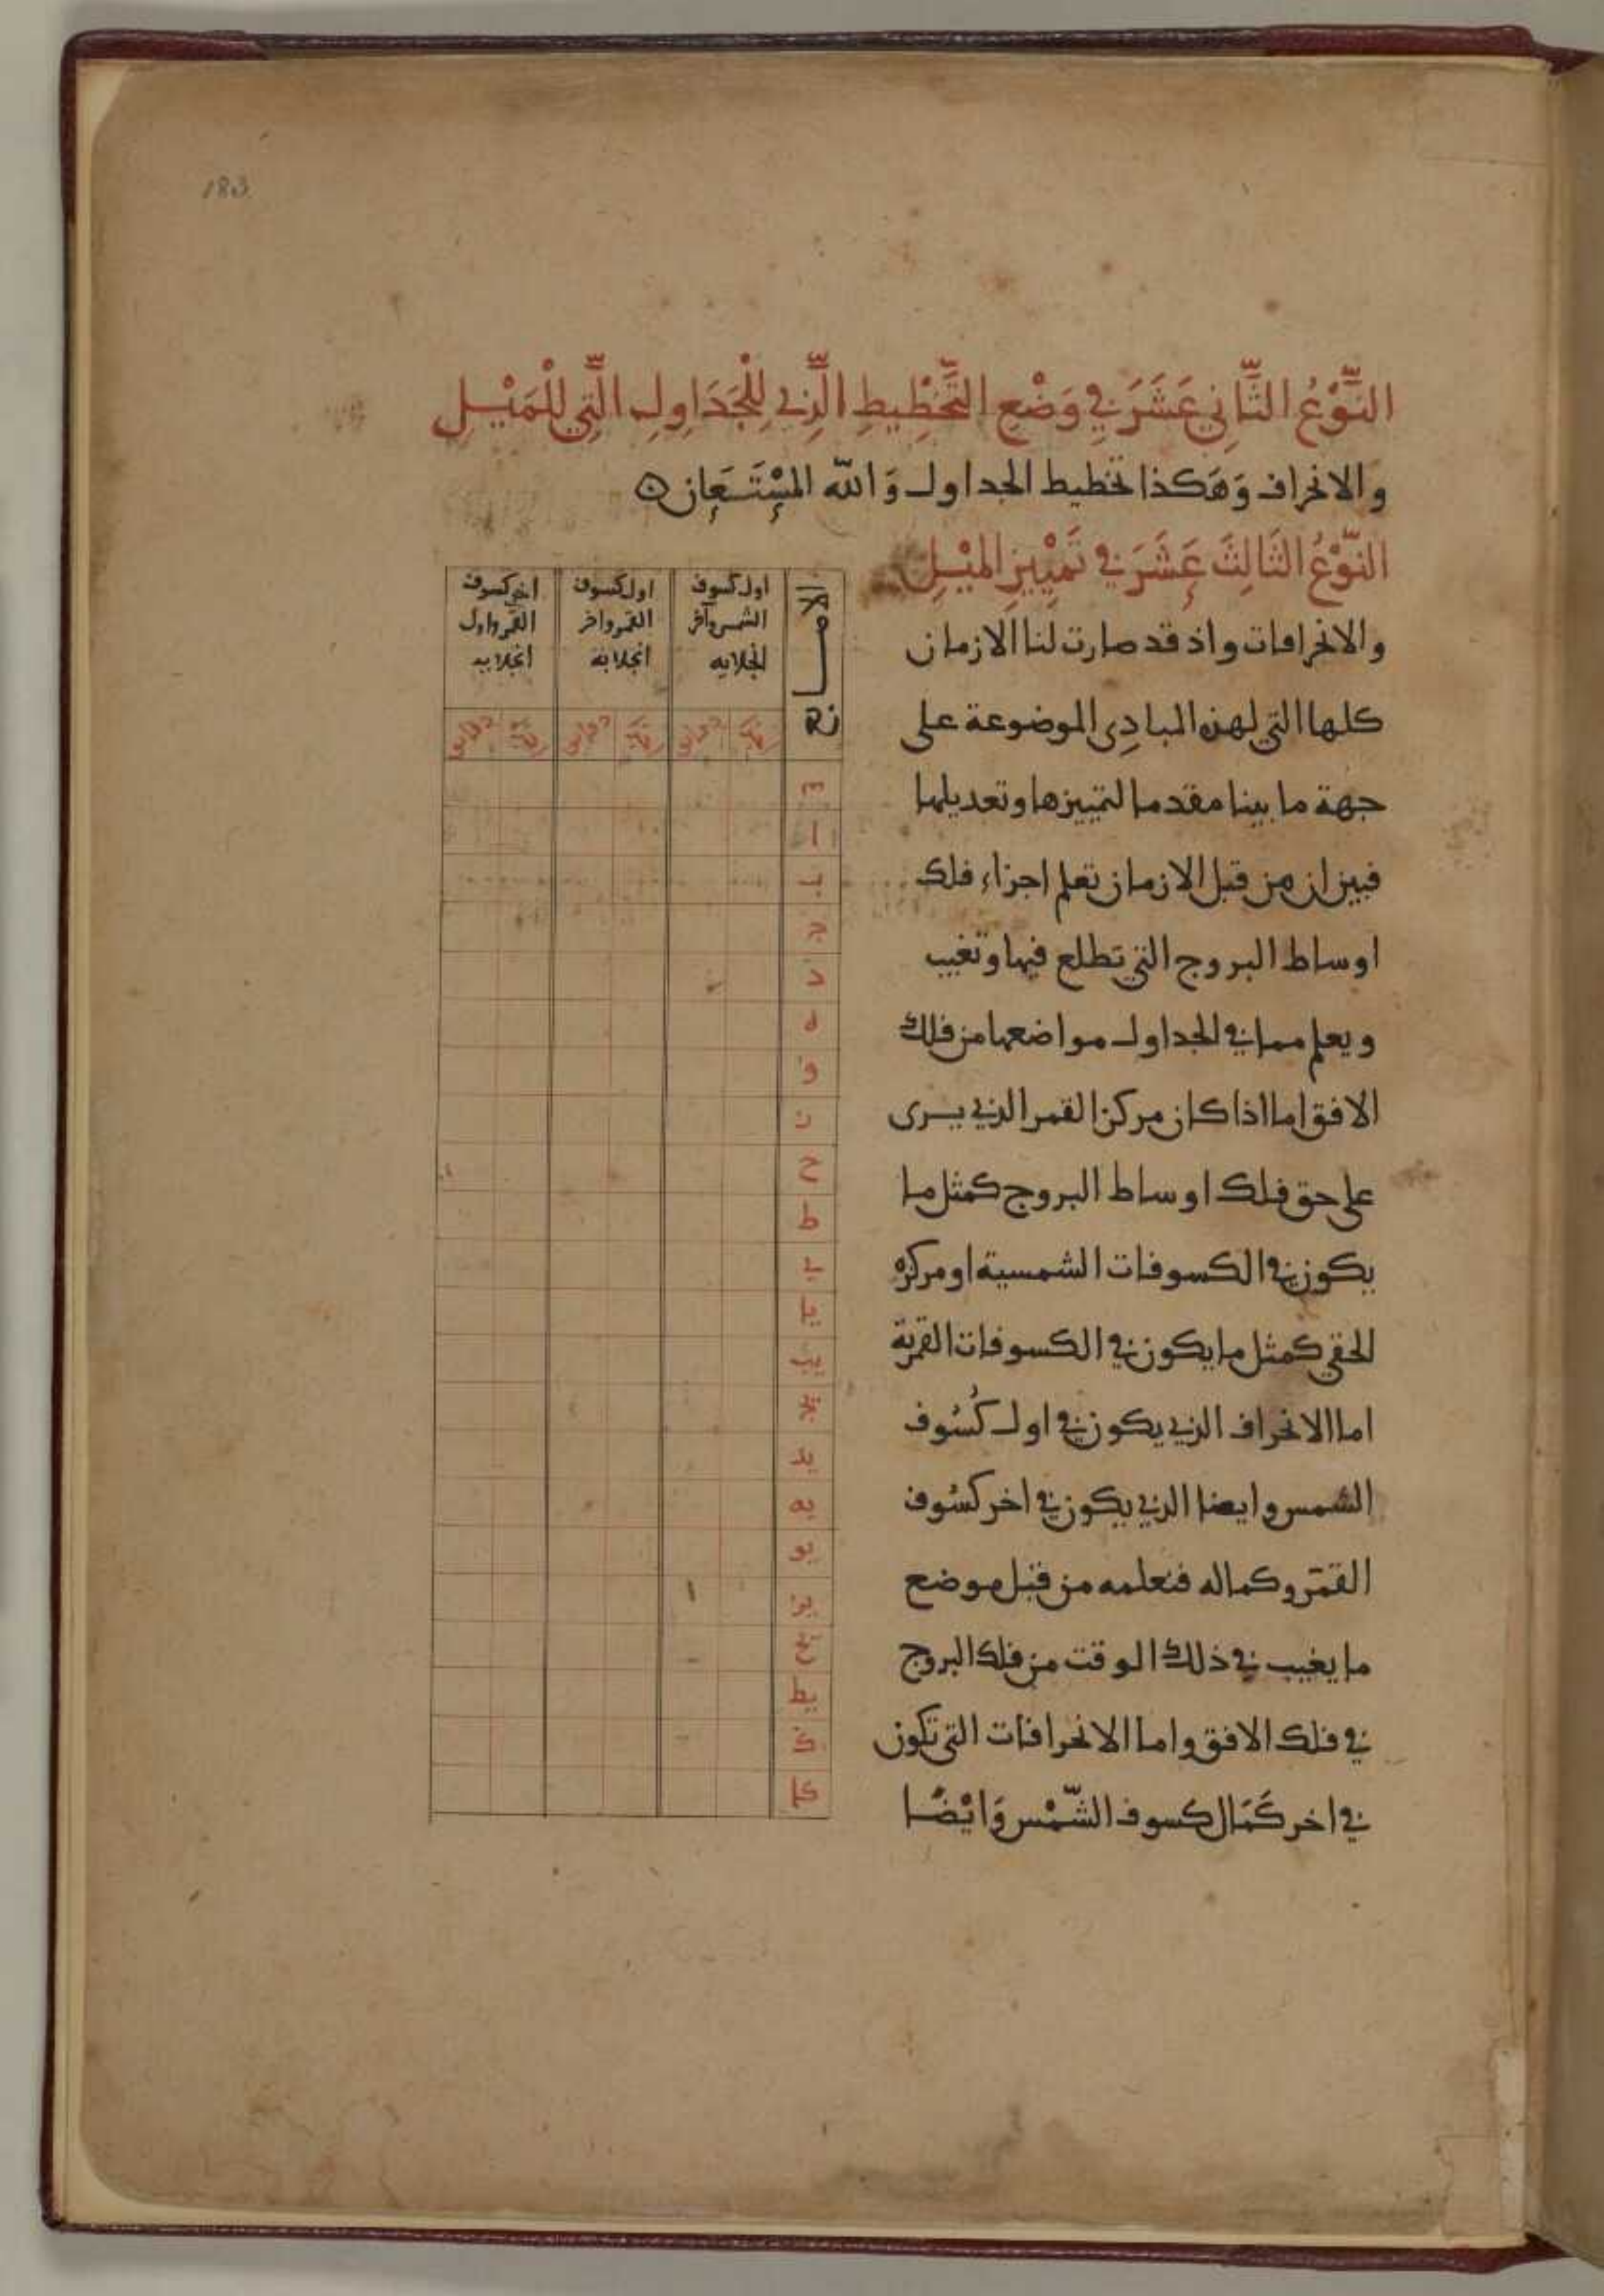 183
النَّوْعُ الثَّانِي عَشَرَ فِي وَضْعِ التَّخْطِيطِ الَّذِي لِلْجَدَاوِلِ الَّتِي لِلْمَيْلِ
والانحراف وَهَكذا تخطيط الجداول وَالله المُسْتَعَان
النَّوْعُ الثَالِثَ عَشَرَ فِي تَمْيِيزِ المَيْلِ
والانحرافات واذ قد صارت لنا الازمان
كلها التي لهذه المبادِى الموضوعة على
جهة ما بينا مقدما لتمييزها وتعديلها
فبين ان من قبل الازمان تعلم اجزاء فلك
اوساط البروج التي تطلع فيها وتغيب
ويعلم مما في الجداول مواضعها من فلك
الافق اما اذا كان مركز القمر الذي يرى
على حق فلك اوساط البروج كمثل ما
يكون في الكسوفات الشمسية او مركزه
الحقي كمثل ما يكون في الكسوفات القمرية
اما الانحراف الذي يكون في اول كُسُوف
الشمس وايضا الذي يكون في اخر كسُوف
القمر وكماله فنعلمه من قبل موضع
ما يغيب في ذلك الوقت من فلك البروج
في فلك الافق واما الانحرافات التي تكون
في اخر كَمَال كسوف الشَّمْس وَايْضًا
اول كسوف
الشمس وآخر
انجلايه
اول كسوف
القمر واخر
انجلايه
اخر كسوف
القمر واول
انجلايه
دقايق
دقايق
دقايق
ا
ب
ج
د
ه
و
ز
ح
ط
ي
يا
يب
يج
يد
يه
يو
يز
يح
يط
ك
كا